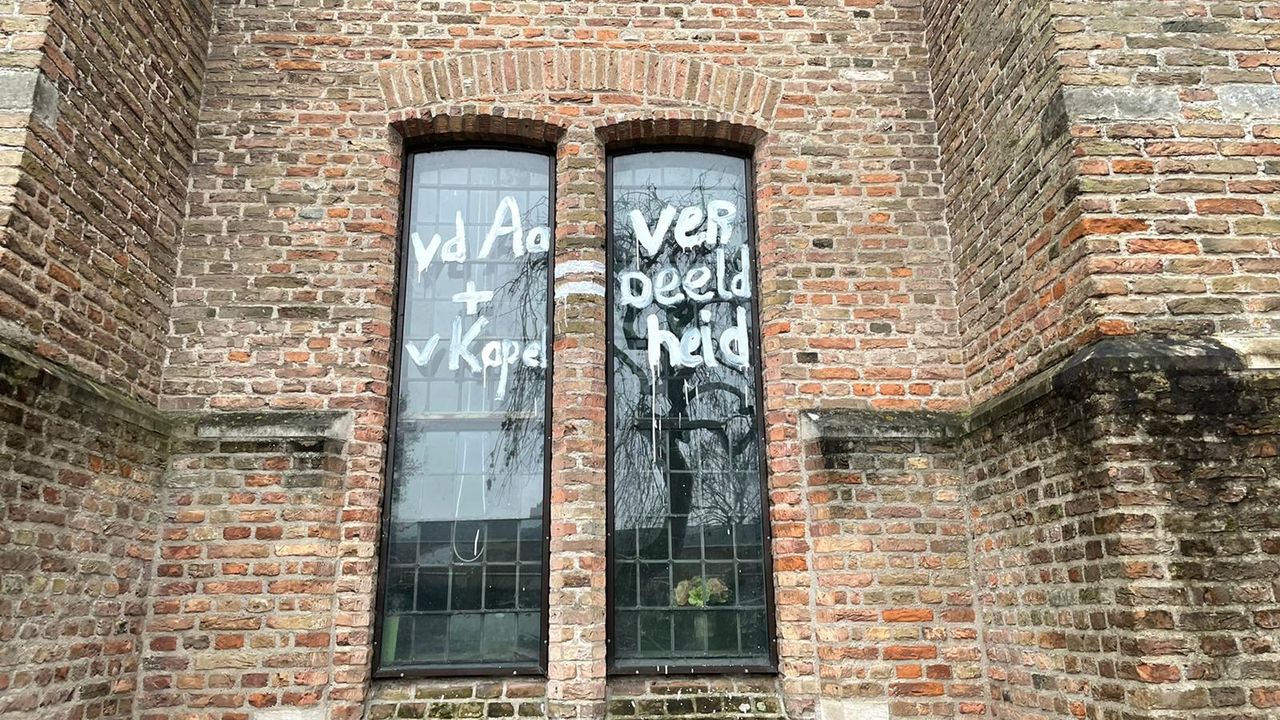 vd Aa
+
v Kapel
=
ver
Deeld
heid